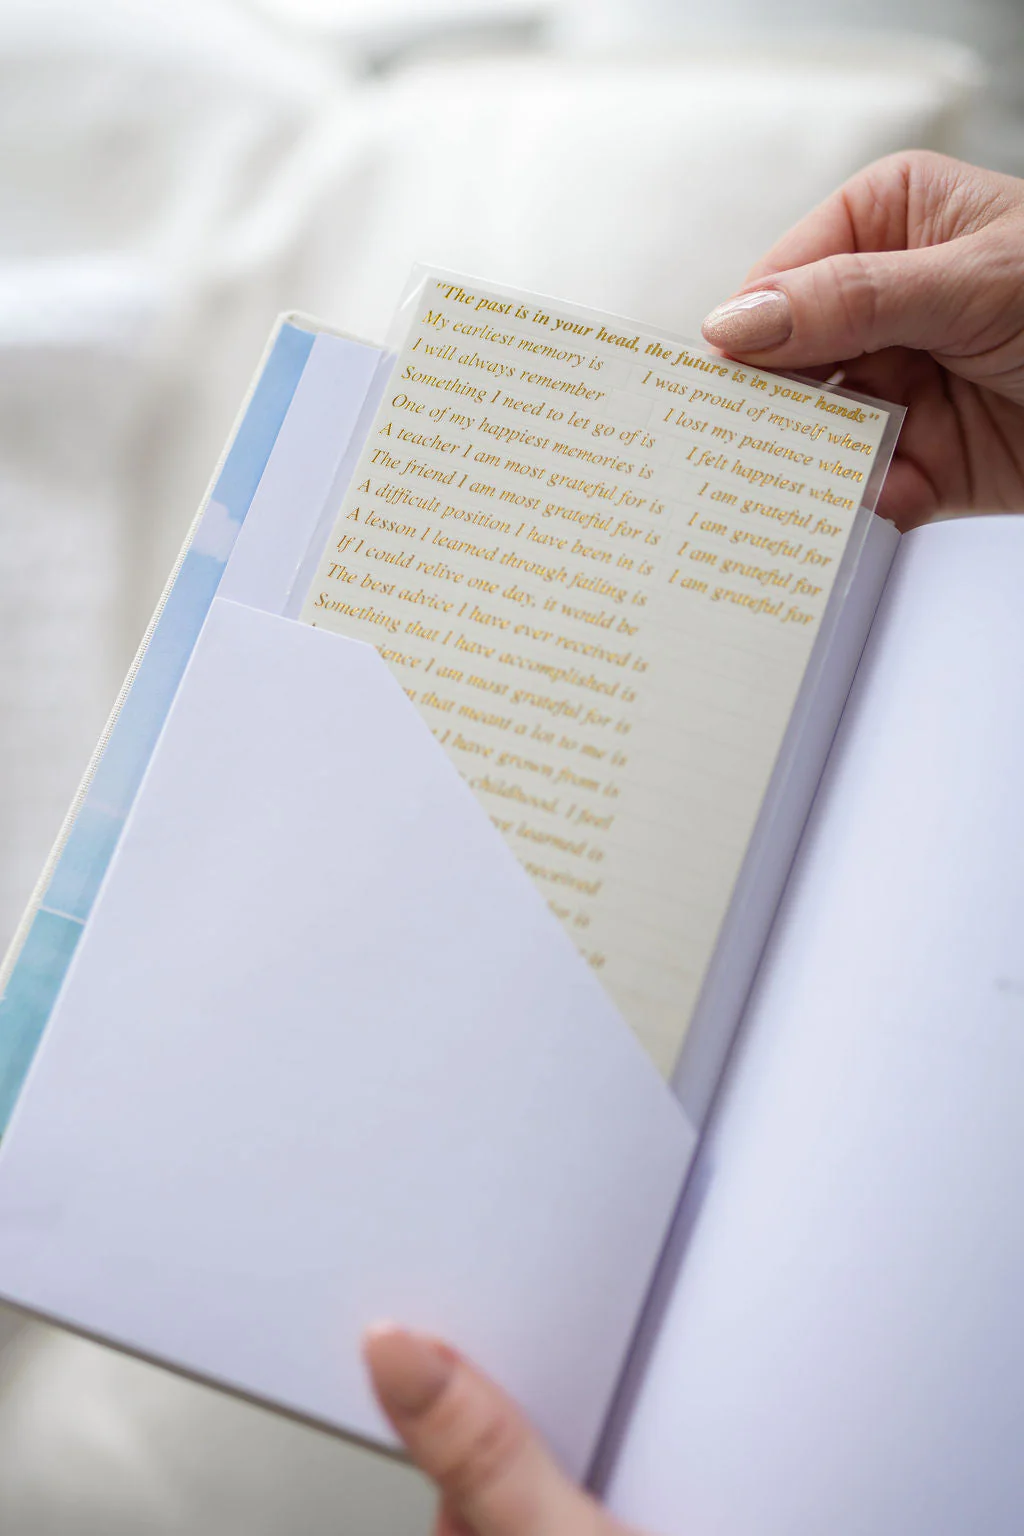 "The past is in your head, the future is in your hands"
My earliest memory is
I will always remember
Something I need to let go of is
One of my happiest memories is
A teacher I am most grateful for is
The friend I am most grateful for is
A difficult position I have been in is
A lesson I learned through failing is
If I could relive one day, it would be
The best advice I have ever received is
Something that I have accomplished is
I am most grateful for is
that meant a lot to me is
I have grown from is
childhood. I feel
learned is
received
is
I was proud of myself when
I lost my patience when
I felt happiest when
I am grateful for
I am grateful for
I am grateful for
I am grateful for